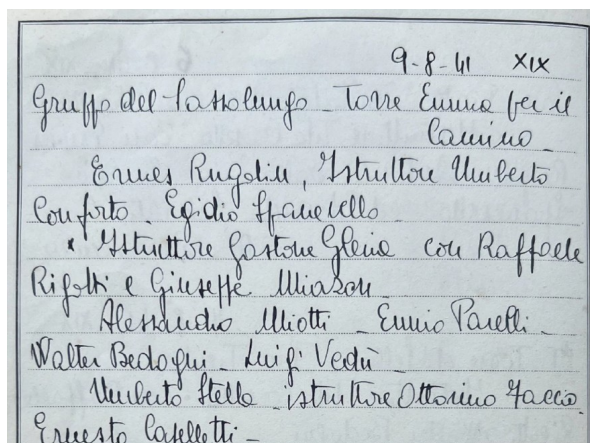 9-8-41 XIX
Gruppo del Sassolungo - Torre Emma per il
Camino -
Ermes Rugolin, Istruttore Umberto
Conforto - Egidio Spanevello -
Istruttore Gastone Gleria con Raffaele
Rigotti e Giuseppe Miazon -
Alessandro Miotti - Ennio Parelli -
Walter Bedogni - Luigi Vedù -
Umberto Stella - istruttore Ottorino Faccio
Ernesto Caselletti -